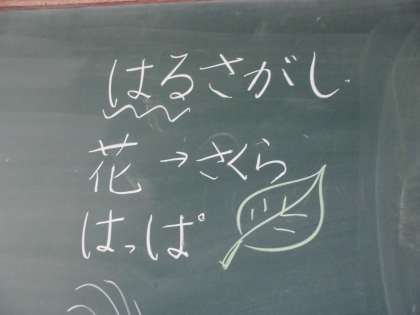 はるさがし
花→さくら
はっぱ